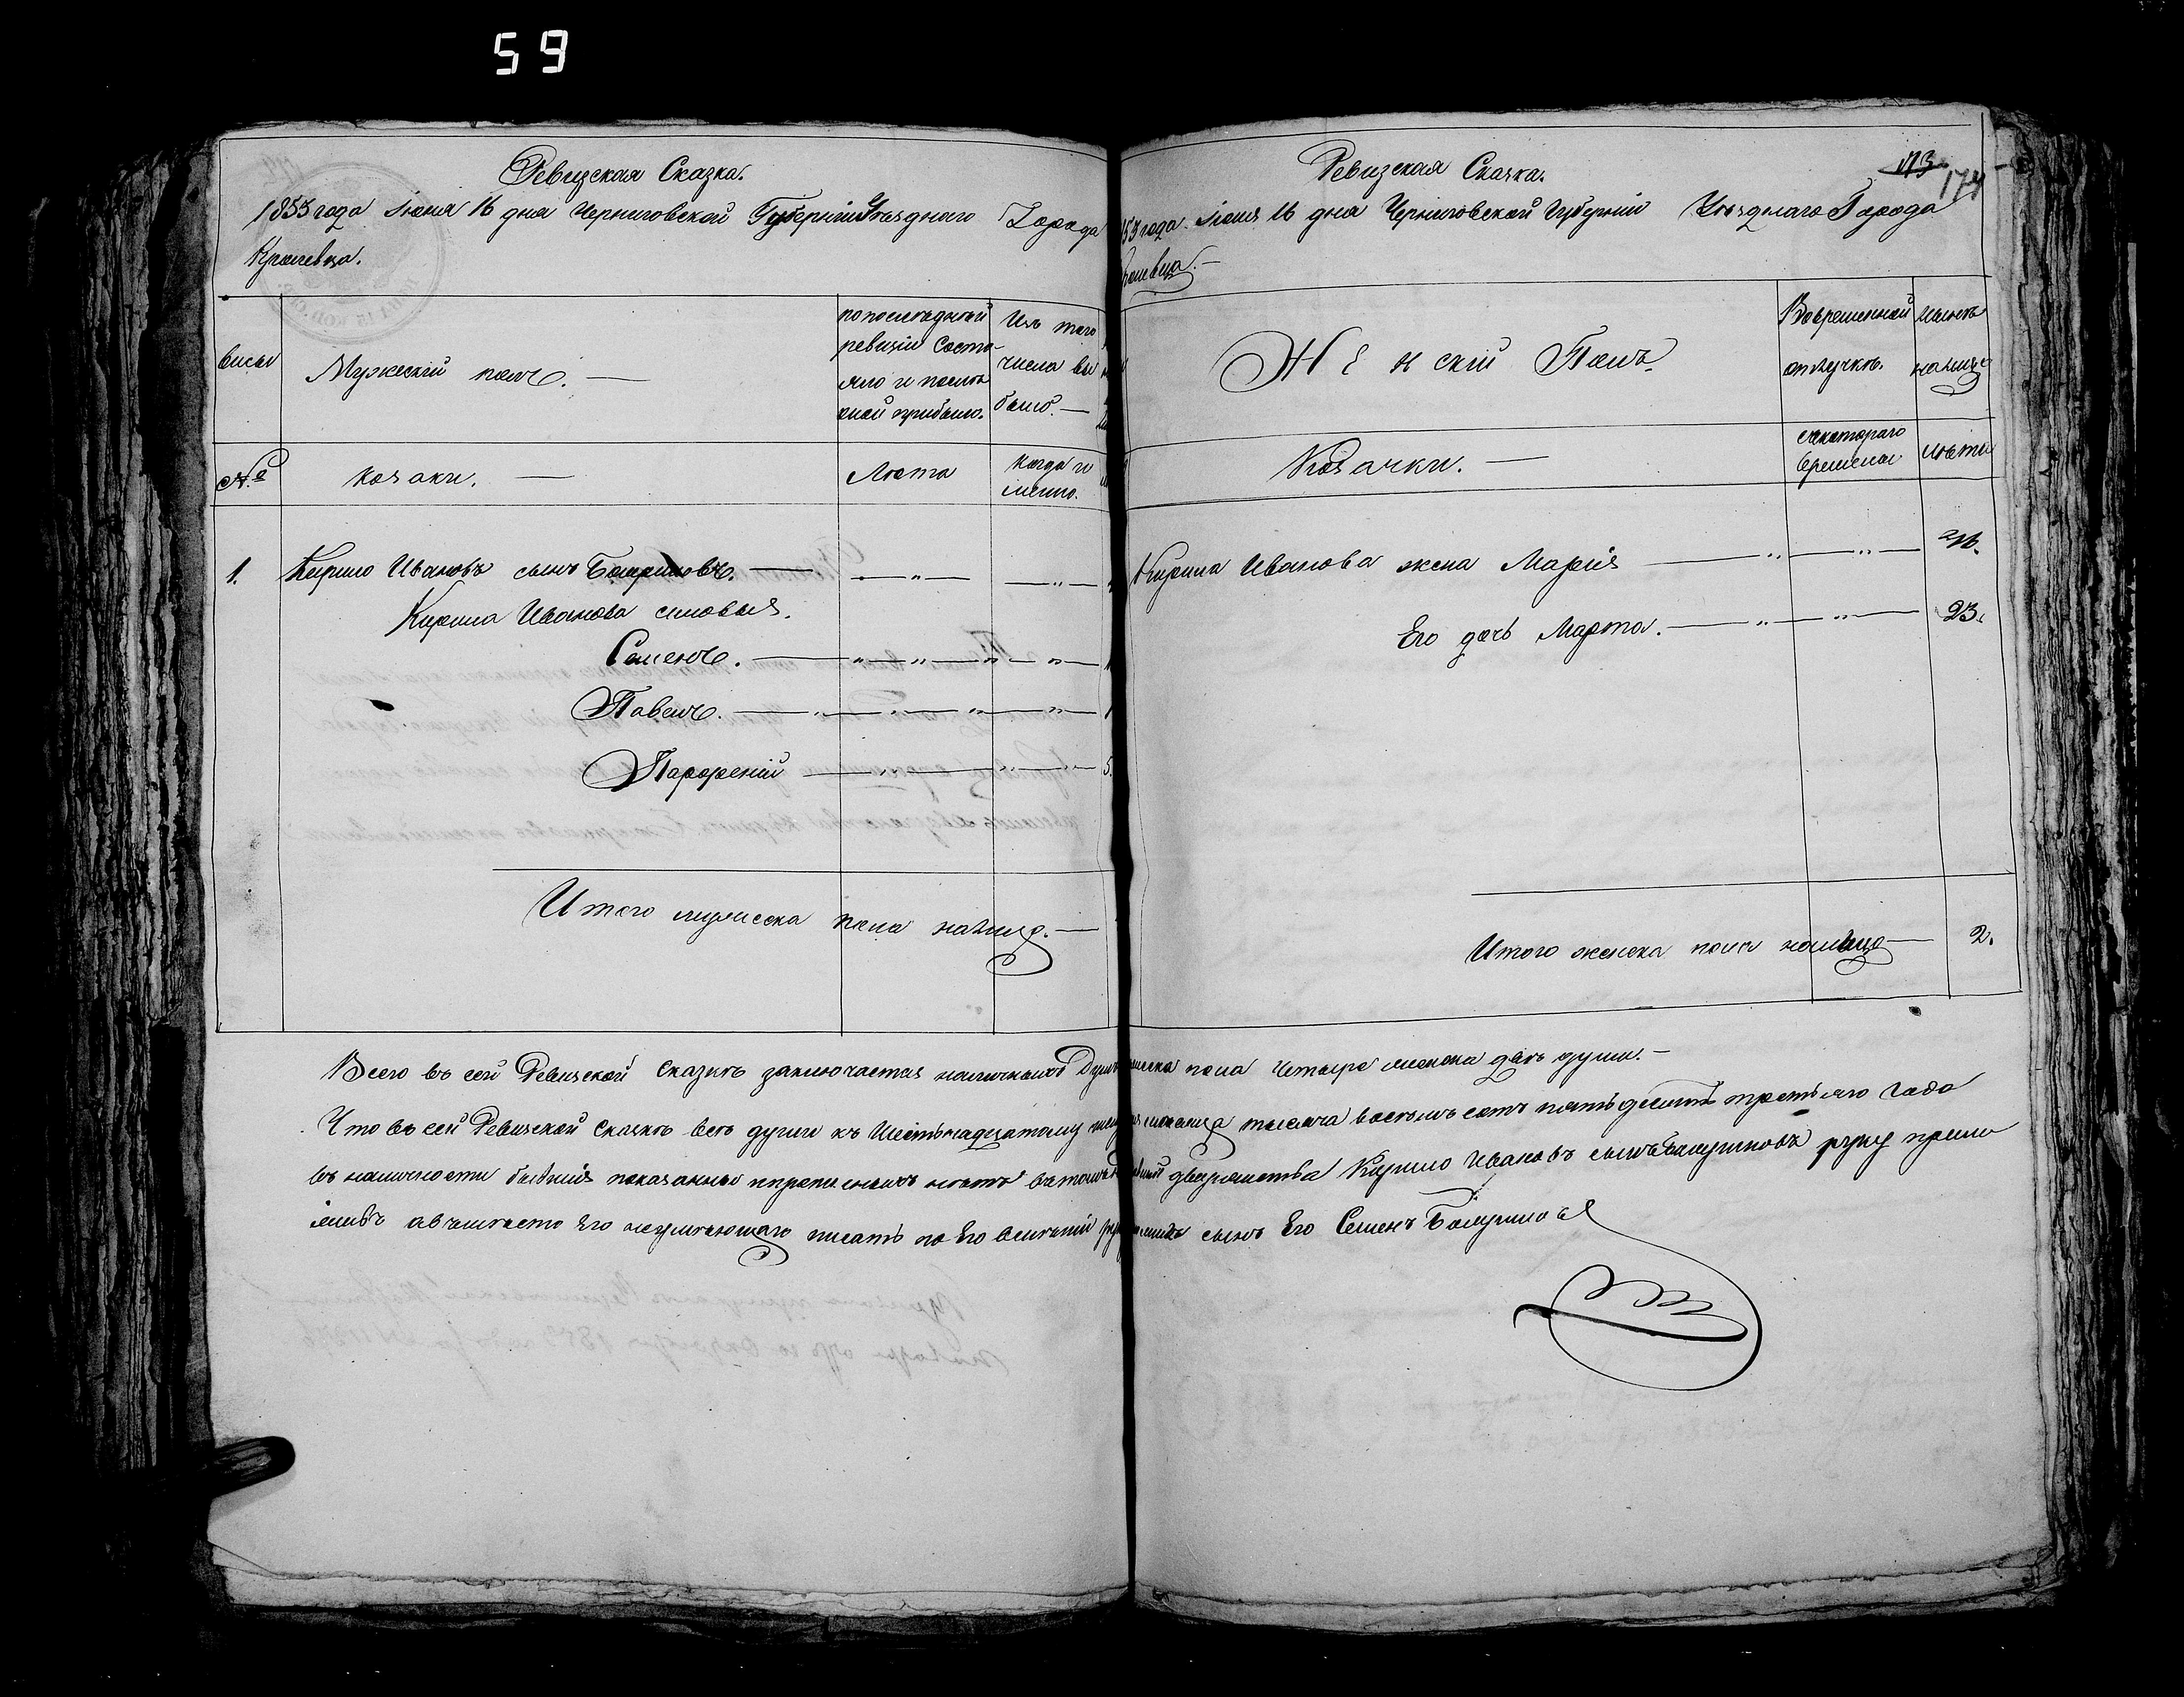 59
Ревизская Сказка.
1853 года Июня 16 дня Черниговской Губернии Уезднаго Города
Кролевца.
Мужеский полъ.
по последней
ревизіи состо-
яло и после
оной прибыло.
Изъ того
числа вы
было.
№
козаки.
Лета
когда и
менно.
1. Кирило Ивановъ сынъ
Кирила Иванова сыновья.
Семенъ.
Павелъ.
Парфеній
Итого мужеска пола налицо.
173
174
Ревизская Сказка.
53 года Июня 16 дня Черниговской Губерніи Уезднаго Города
ролевца.
Женскій Полъ.
Во временной
отлучке.
ныне
налицо
Козачки.
с котораго
времени
лета
Кирила Иванова жена Марія
Его дочь Марта. 23.
Итого женска пола налицо 2.
Всего въ сей Ревизской Сказке заключается наличныхъ Душъ пола четыре женска две души.
Что въ сей Ревизской Сказке все души къ Шестьнадцатому месяца тысяча восемь сотъ пятьдесятъ третьяго года
въ наличности бывшія показаны и прописныхъ нетъ въ томъ Кирило Ивановъ сынъ руку прило
живъ а вместо Его неумеющаго писать по Его велению сынъ Его Семенъ